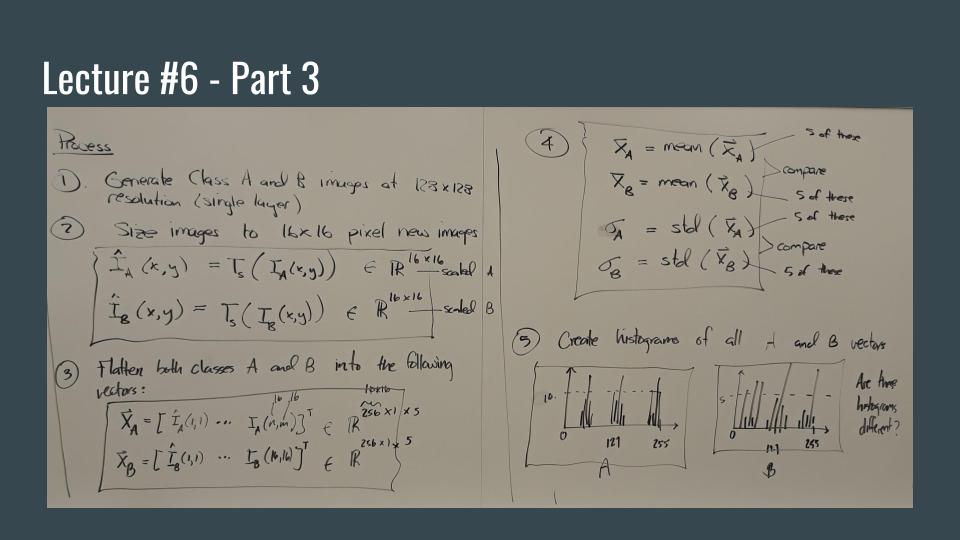 Lecture #6 - Part 3
Process
① . Generate Class A and B images at 128x128
resolution (single layer)
② Size images to 16x16 pixel new images
Î_A (x,y) = T_s ( I_A(x,y) ) ∈ ℝ^16x16 — scaled A
Î_B (x,y) = T_s ( I_B(x,y) ) ∈ ℝ^16x16 — scaled B
③ Flatten both classes A and B into the following
vectors:
16 16
16x16
X⃗_A = [ Î_A(1,1) ... I_A(n,m) ]^T ∈ ℝ^256x1 x 5
X⃗_B = [ Î_B(1,1) ... I_B(16,16) ]^T ∈ ℝ^256x1 x 5
④
x̄_A = mean ( X⃗_A ) 5 of these
compare
x̄_B = mean ( X⃗_B ) 5 of these
σ_A = std ( X⃗_A ) 5 of these
compare
σ_B = std ( X⃗_B ) 5 of these
⑤ Create histograms of all A and B vectors
10
0 127 255
A
5
0 127 255
B
Are these
histograms
different?